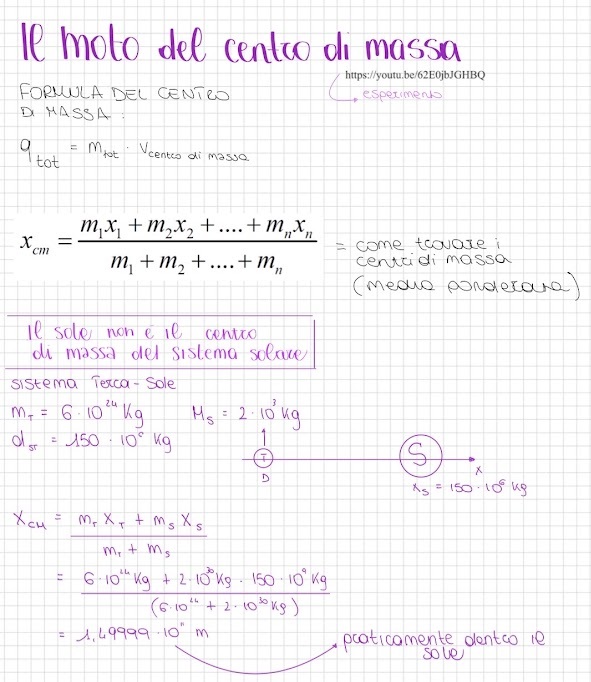 Il moto del centro di massa
https://youtu.be/62E0jbJGHBQ
esperimento
FORMULA DEL CENTRO
DI MASSA:
q_tot = m_tot · V_centro di massa
x_cm = (m_1x_1 + m_2x_2 + .... + m_nx_n) / (m_1 + m_2 + .... + m_n)
= come trovare i
centri di massa
(media ponderata)
Il sole non è il centro
di massa del sistema solare
sistema Terra-Sole
m_T = 6·10^24 Kg M_S = 2·10^3 Kg
d_ST = 150·10^6 Kg
T S
x
D
x_S = 150·10^6 Kg
X_CM = (m_T X_T + m_S X_S) / (m_T + m_S)
= (6·10^24 Kg + 2·10^30 Kg · 150·10^9 Kg) / (6·10^24 + 2·10^30 Kg)
= 1,49999·10^11 m
praticamente dentro il
sole